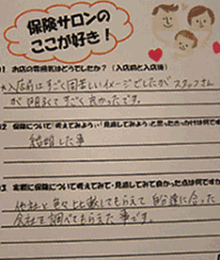 保険サロンの
ここが好き！
お店の雰囲気はどうでしたか？（入店前と入店後）
入店前はすごく固苦しいイメージでしたがスタッフさん
が明るくてすごく良かったです。
保険について「考えてみよう」「見直してみよう」と思ったきっかけは何ですか
結婚した事
実際に保険について考えてみて・見直してみて良かった点は何ですか
他社と色々比較してもらえて自分達に合った
会社を調べてもらえた事です。